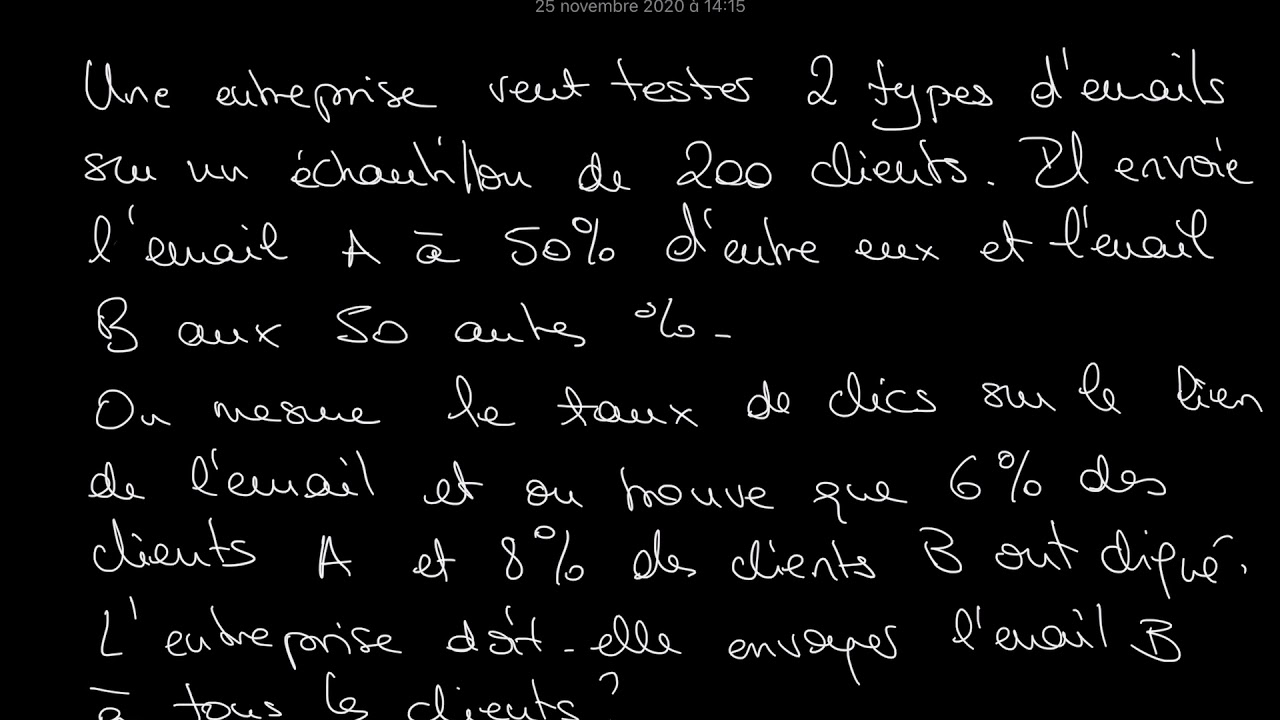 25 novembre 2020 à 14:15
Une entreprise veut tester 2 types d'emails
sur un échantillon de 200 clients. Il envoie
l'email A à 50% d'entre eux et l'email
B aux 50 autres %.
On mesure le taux de clics sur le lien
de l'email et on trouve que 6% des
clients A et 8% des clients B ont cliqué.
L'entreprise doit-elle envoyer l'email B
à tous les clients?